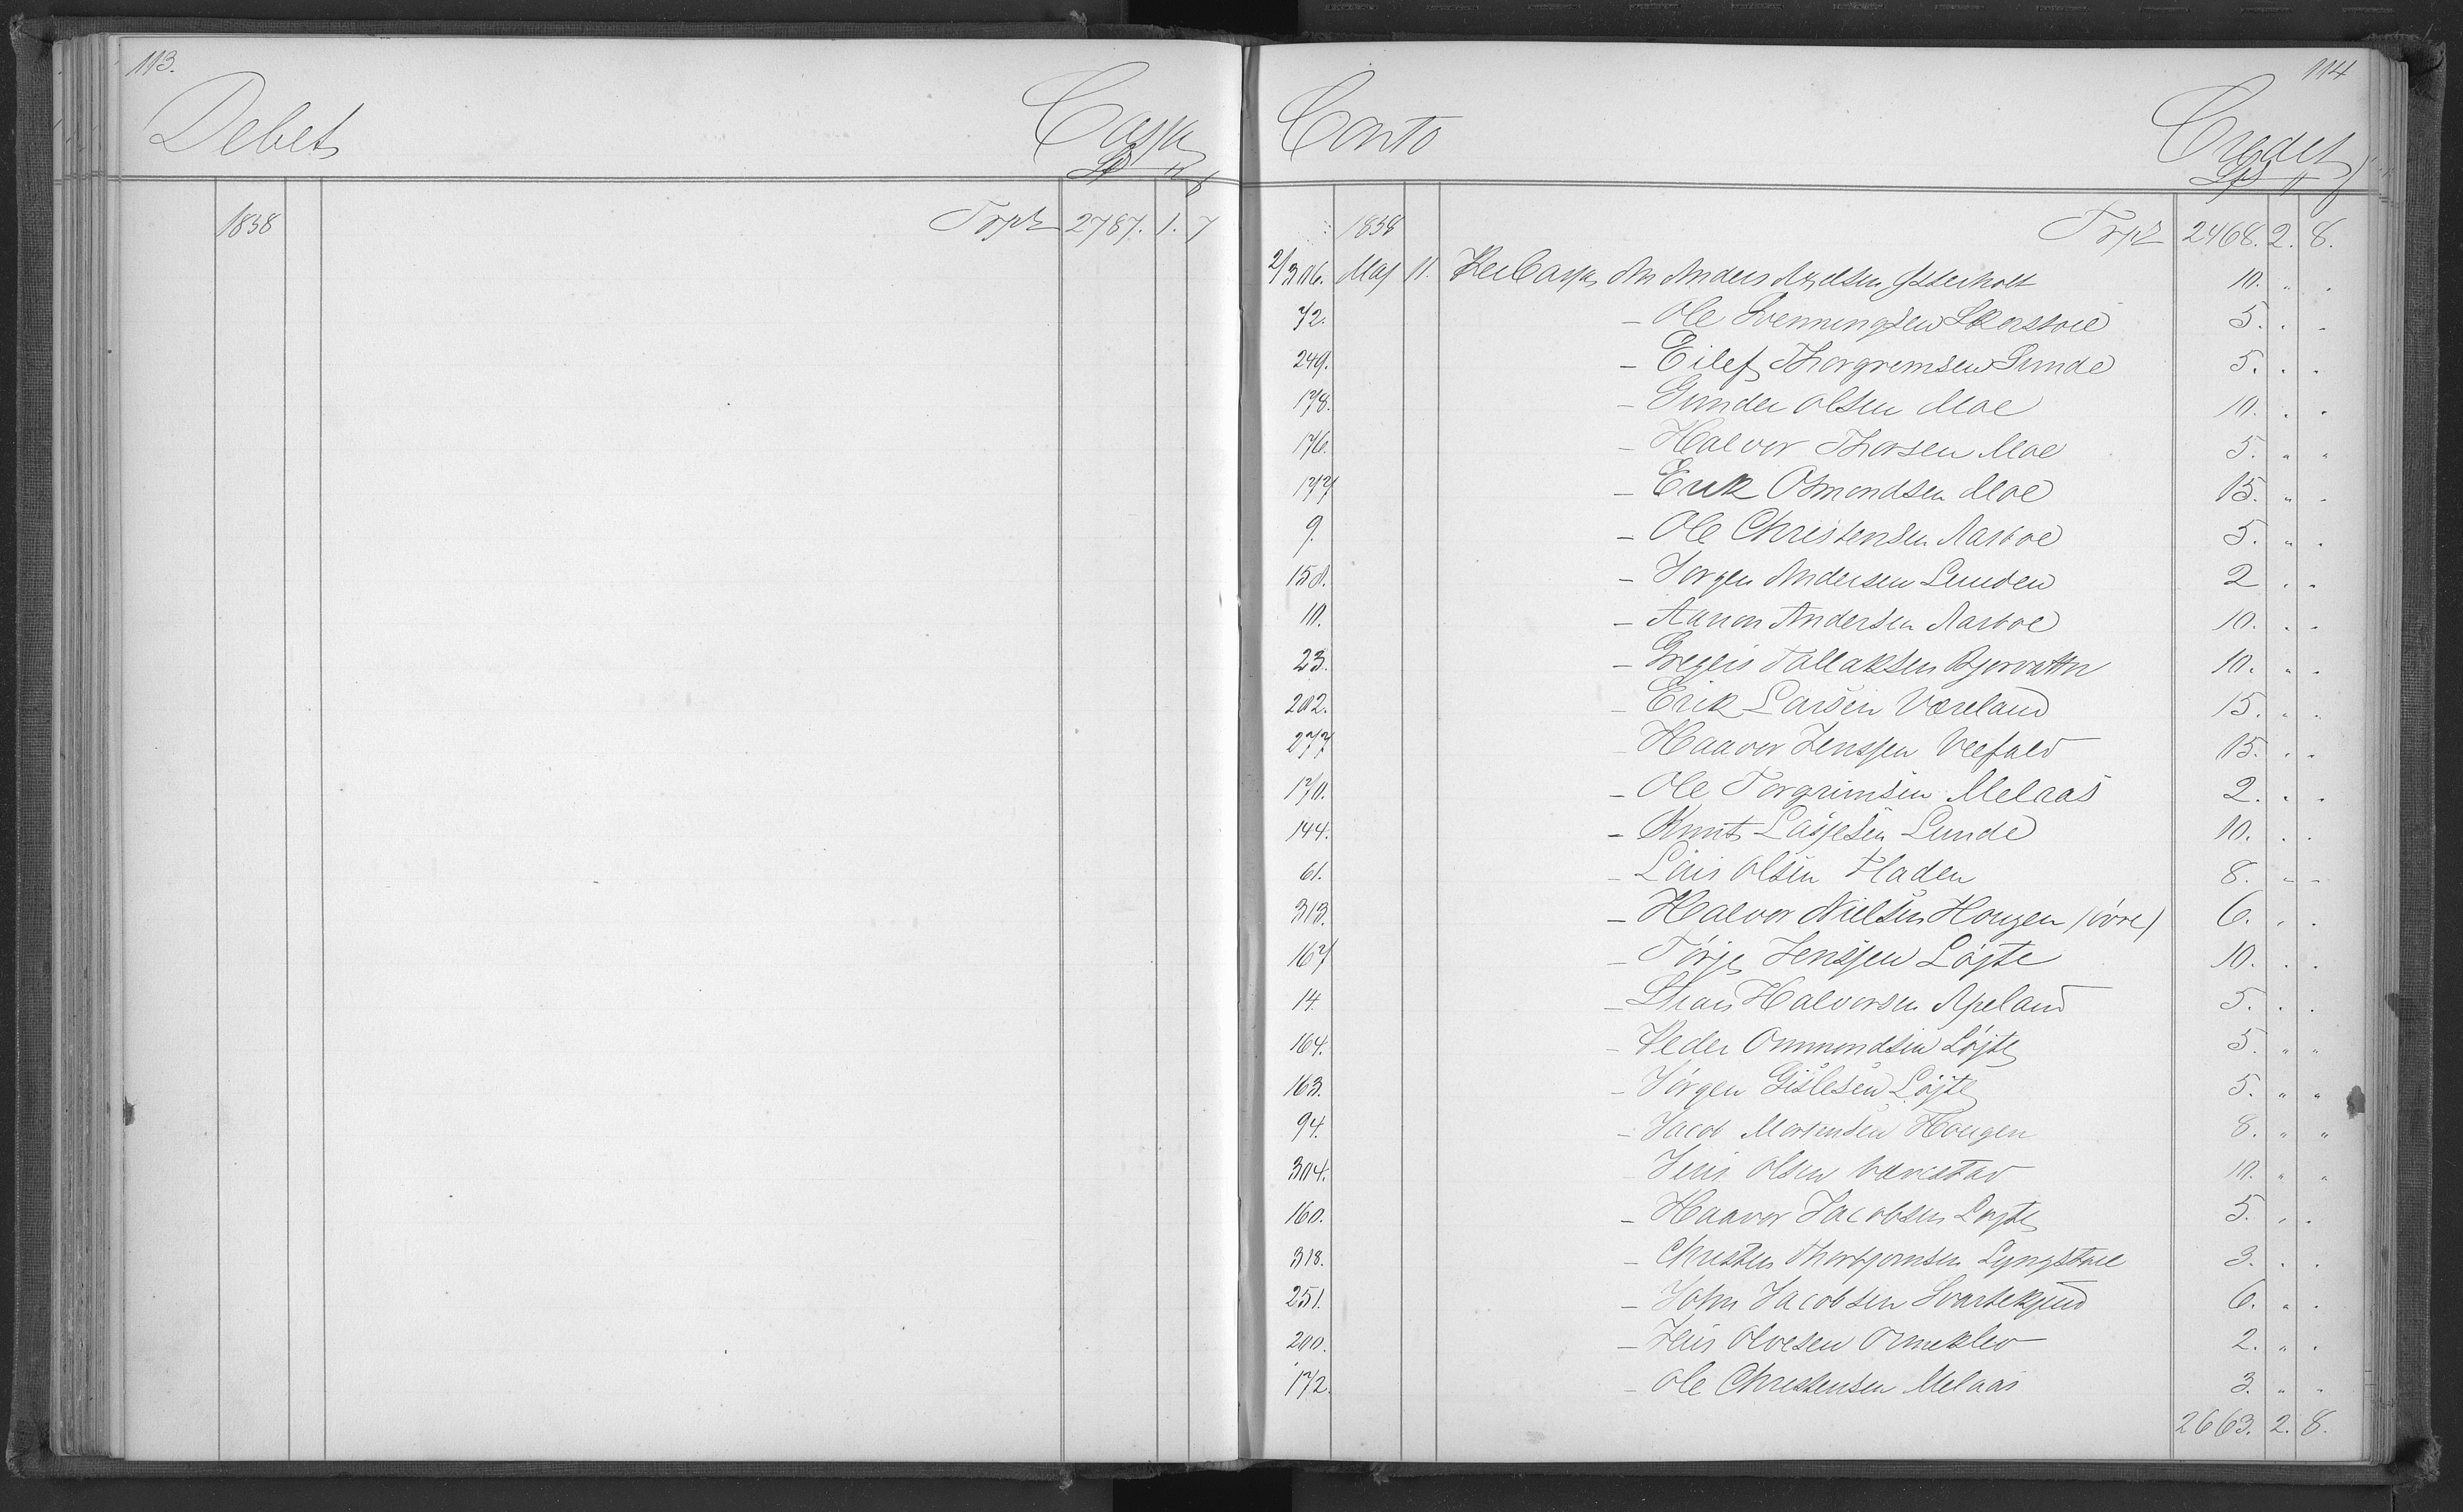 113.
Debet Cassa
Sp
1838 Trpt 2787. 1. 7
114
Conto Credit
Sp
1838 Trpt 2468. 2. 8.
2/306. Maj 11. Per Cassa An Anders 10. " "
72. - Ole Svenningsen 5. " "
249. - Eilef Thorgremsen Sunde 5. " "
178. - Gunder Olsen Moe 10. " "
176. - Halvor Thorsen Moe 5. " "
177 - Erik Osmondsen Moe 15. " "
9. - Ole Christensen Aasboe 5. " "
150. - Jorgen Andersen Lunden 2 " "
10. - Aanon Andersen Aasboe 10. " "
23. - Gregers Tallaksen Bjorvattn 10. " "
202. - Erik Larsen Væreland 15. " "
277 - Haavor Jenssen Veefald 15. " "
170. - Ole Torgrimsen Melaas 2. " "
144. - Knut Lassesen Lunde 10. " "
61. - Lars Olsen Fladen 8. " "
313. - Halvor Nielsen Hougen (øvre) 6. " "
167 - Tørje Jenssen Løjte 10. " "
14. - Halvorsen Apeland 5. " "
164. - Peder Ommundsen Løjte 5. " "
163. - Jørgen Gislesen Løjte 5. " "
94. - Jacob Mortensen Hougen 8. " "
304. - Jens Olsen Værestad 10. " "
160. - Haavor Jacobsen Løjte 5. " "
318. - Christen Thorbjornsen Lyngstoel 3. " "
251. - John Jacobsen Svartekjend 6. " "
200. - Jens Olvesen Ormeklev 2. " "
172. - Ole Christensen Melaas 3. " "
2663. 2. 8.